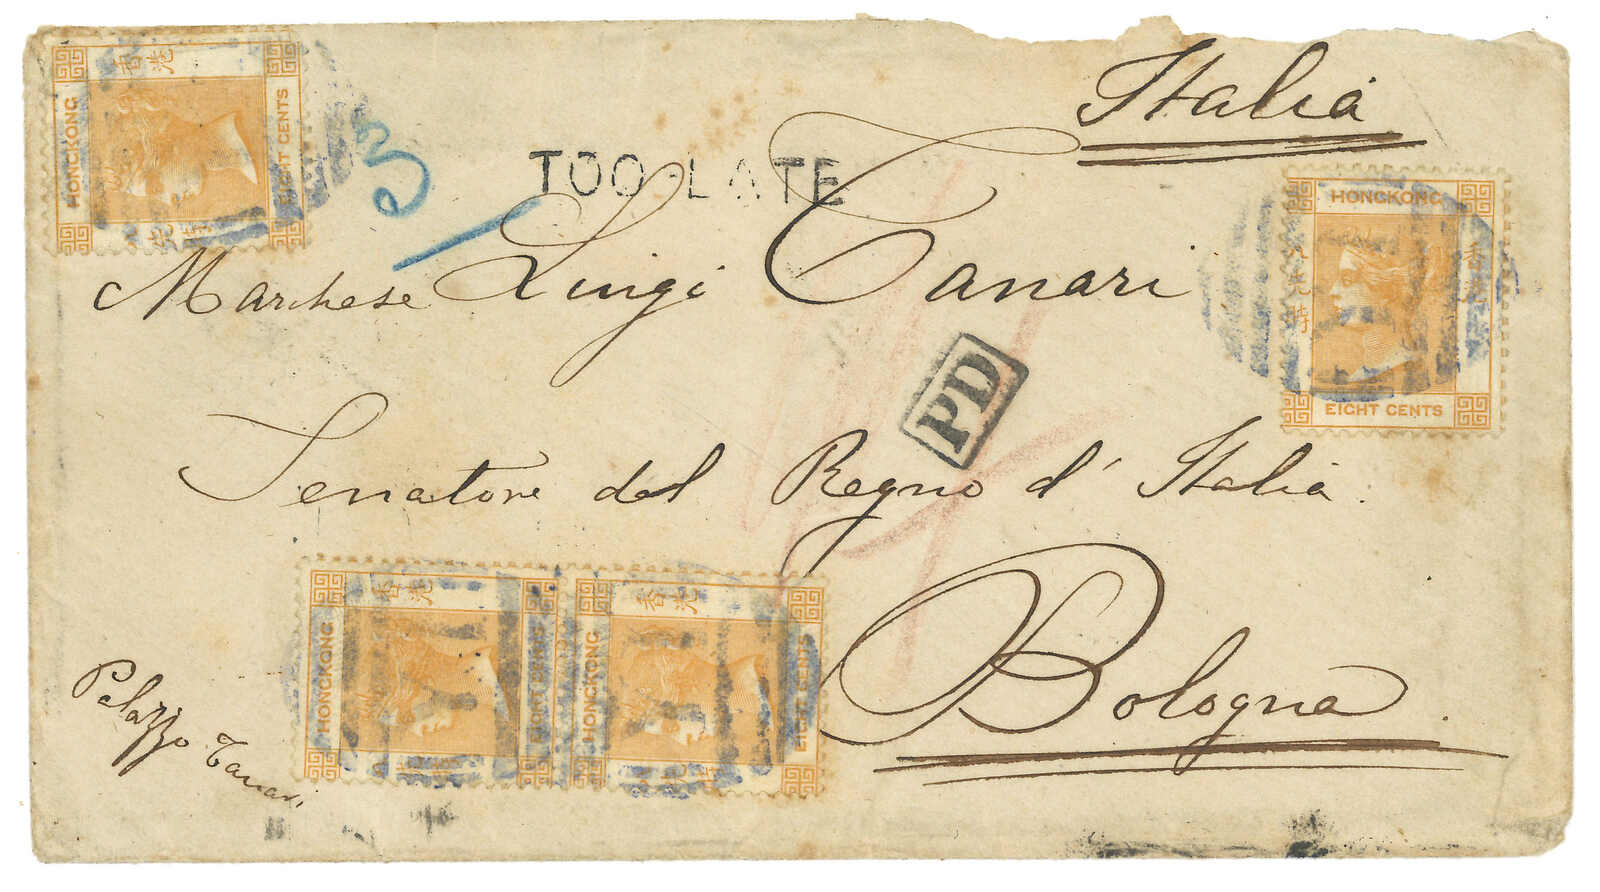 Italia
TOO LATE
3/
Marchese Luigi Tanari
PD
Senatore del Regno d' Italia.
Bologna.
Palazzo Tanari
香港
HONGKONG
EIGHT CENTS
HONGKONG
香港
EIGHT CENTS
香港
HONGKONG
香港
HONGKONG
EIGHT CENTS